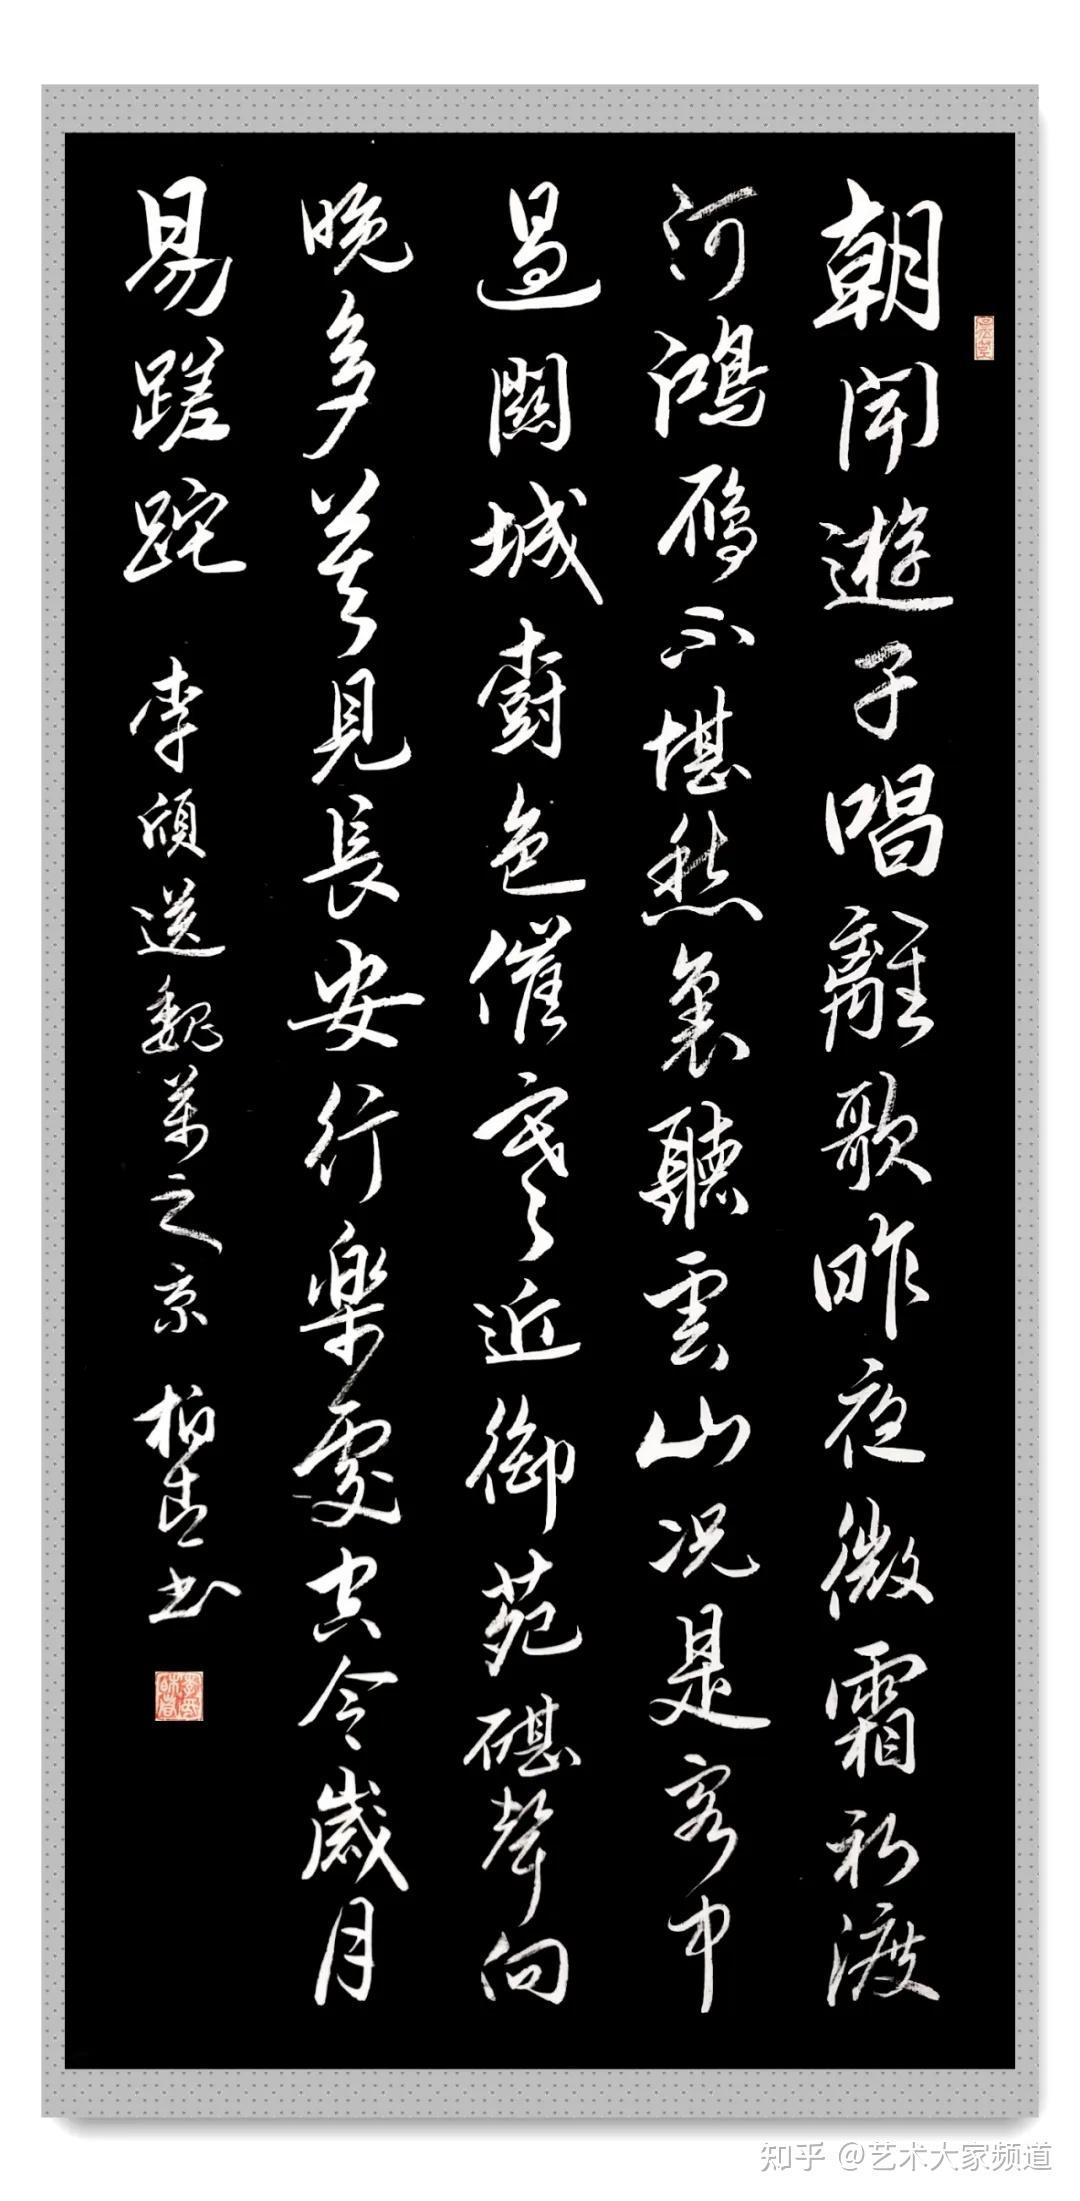 朝聞遊子唱離歌昨夜微霜初渡
河鴻鴈不堪愁裏聽雲山况是客中
過關城樹色催寒近御苑碪聲向
晚多莫見長安行楽處空令歲月
易蹉跎 李頎送魏萬之京 柏书
知乎 @艺术大家频道